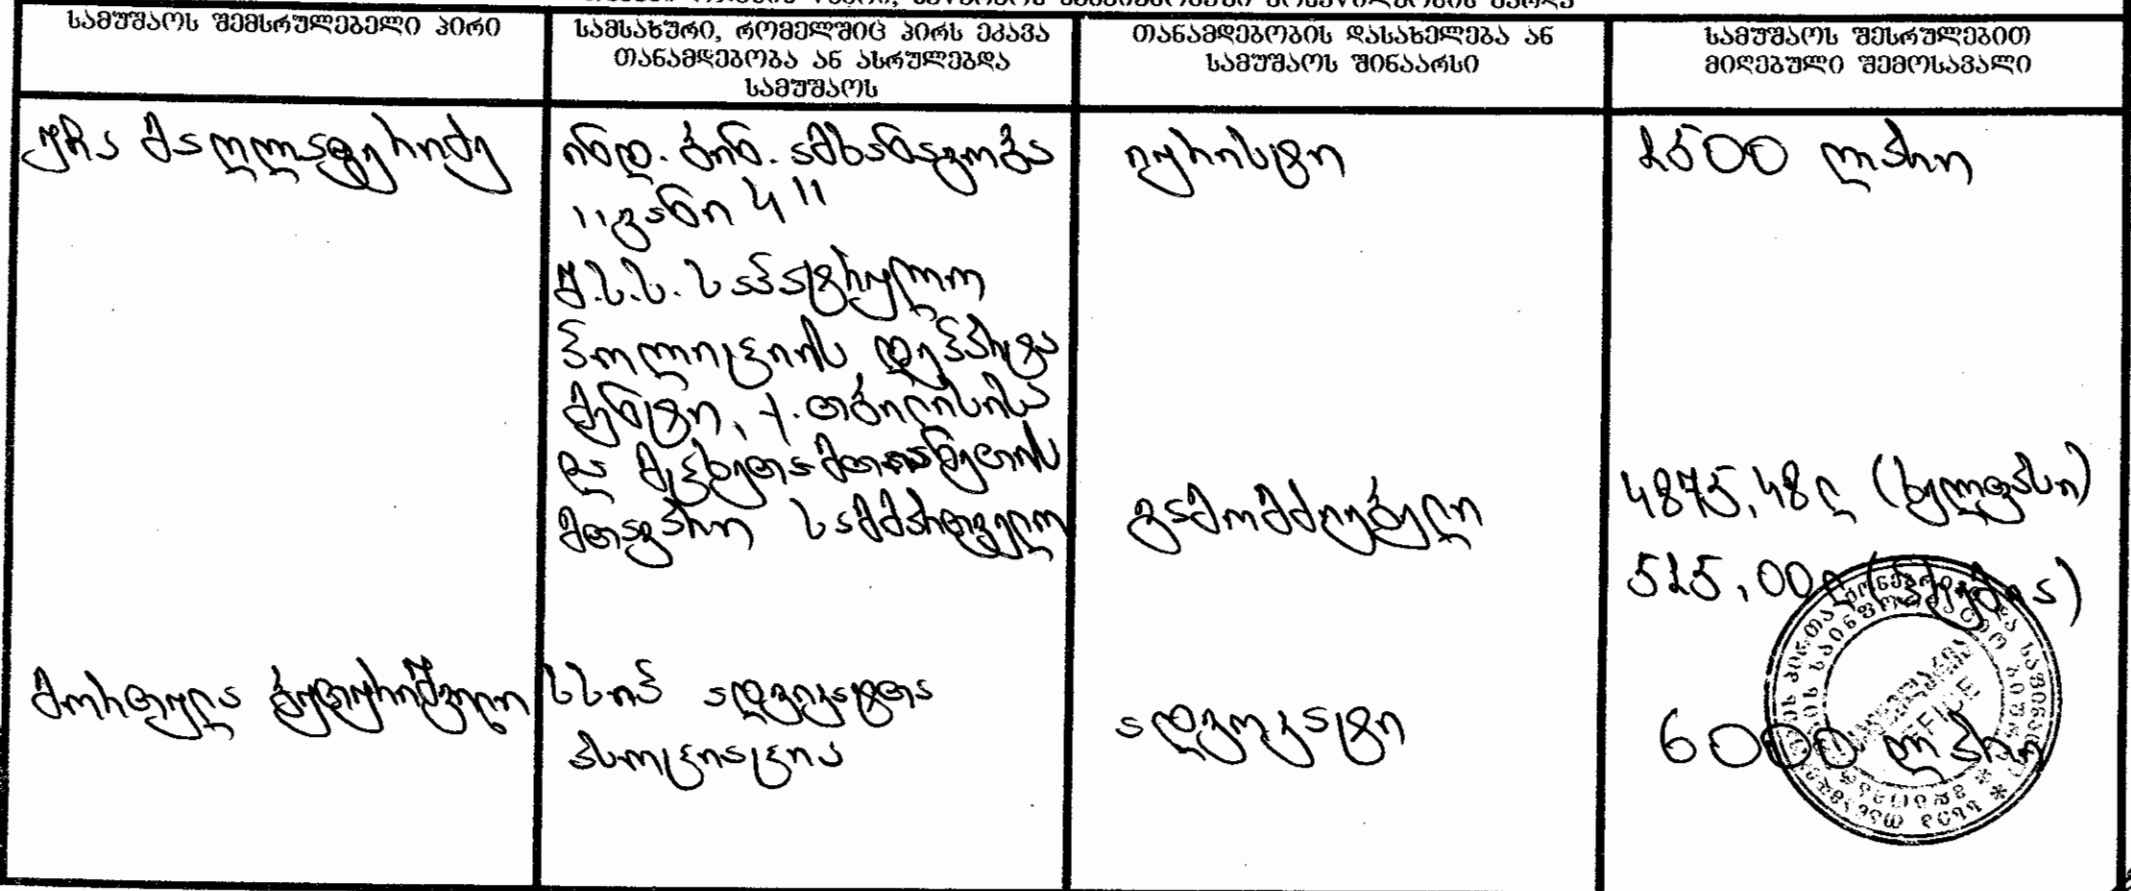 სამუშაოს შემსრულებელი პირი
სამსახური, რომელშიც პირს ეკავა
თანამდებობა ან ასრულებდა
სამუშაოს
თანამდებობის დასახელება ან
სამუშაოს შინაარსი
სამუშაოს შესრულებით
მიღებული შემოსავალი
უჩა მაღლაფერიძე
ინდ. ბინ. ამხანაგობა
"ვანი 4"
იურისტი
2500 ლარი
შ.ს.ს. საპატრულო
პოლიციის დეპარტა
მენტი, ქ. თბილისისა
და მცხეთა-მთიანეთის
მთავარი სამმართველო
გამომძიებელი
4875,48ლ (ხელფასი)
525,00ლ (პრემია)
მორფულა ბუთურიშვილი
სსიპ ადვოკატთა
ასოციაცია
ადვოკატი
6000 ლარი